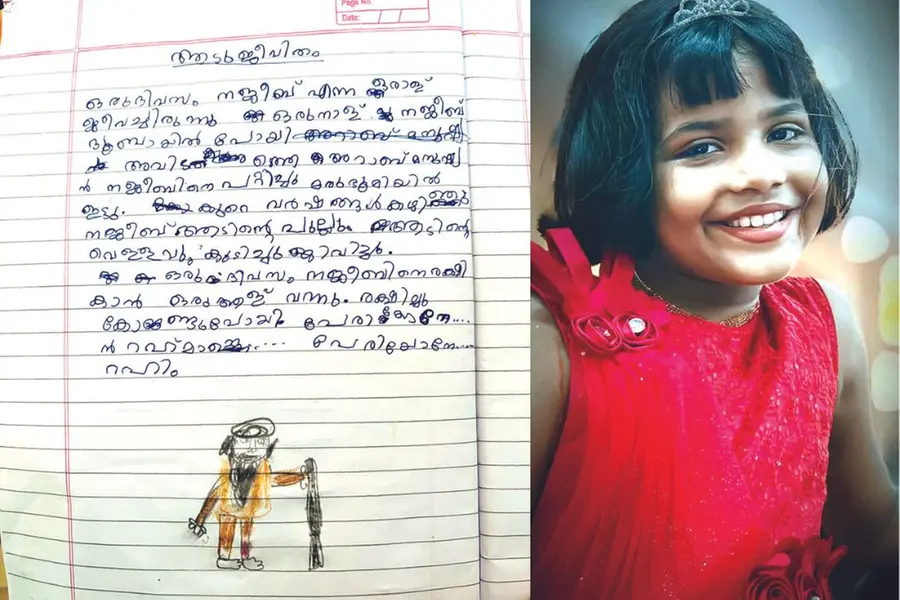 Page No.
Date:
ആടുജീവിതം
ഒരുദിവസം നജീബ് എന്ന ഒരാള്
ജീവച്ചിരുന്നു ഒരുനാള് നജീബ്
ദുബായിൽ പോയി
അവിടെ എത്തി അറാബ് മനുഷ്യ
ൻ നജീബിനെ പറ്റിച്ചു മരുഭൂമിയിൽ
ഇട്ടു. കുറെ വർഷങ്ങൾ കഴിഞ്ഞു
നജീബ് ആടിന്റെ പുല്ലും ആടിന്റെ
വെള്ളവും കുടിച്ചു ജീവിച്ചു.
ഒരു ദിവസം നജീബിനെ രക്ഷി
കാൻ ഒരു ആള് വന്നു. രക്ഷിച്ചു
കോണ്ടുപോയി പേരിയോനേ....
പേരിയോനേ....
റഹിം